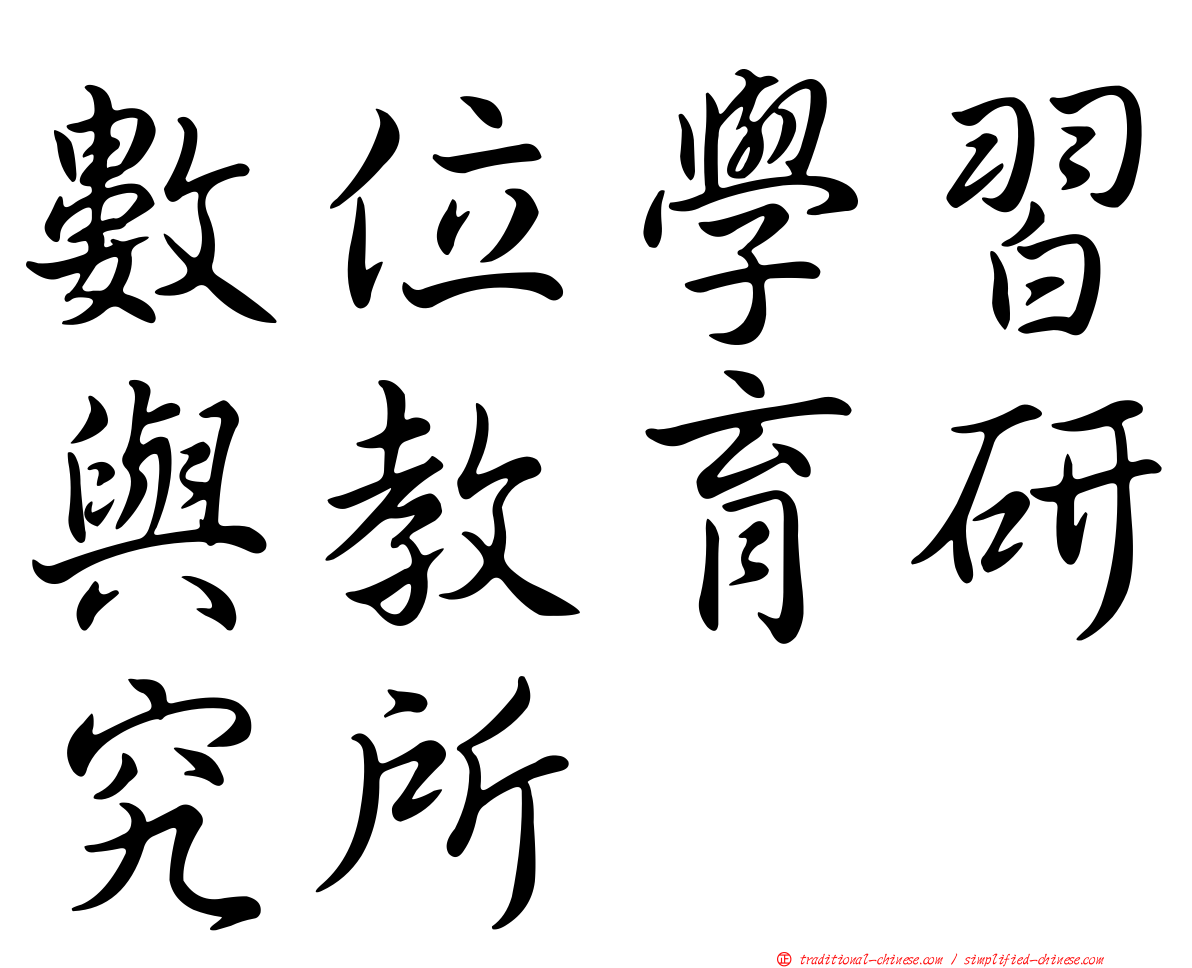 數位學習
與教育研
究所
正 traditional-chinese.com / simplified-chinese.com